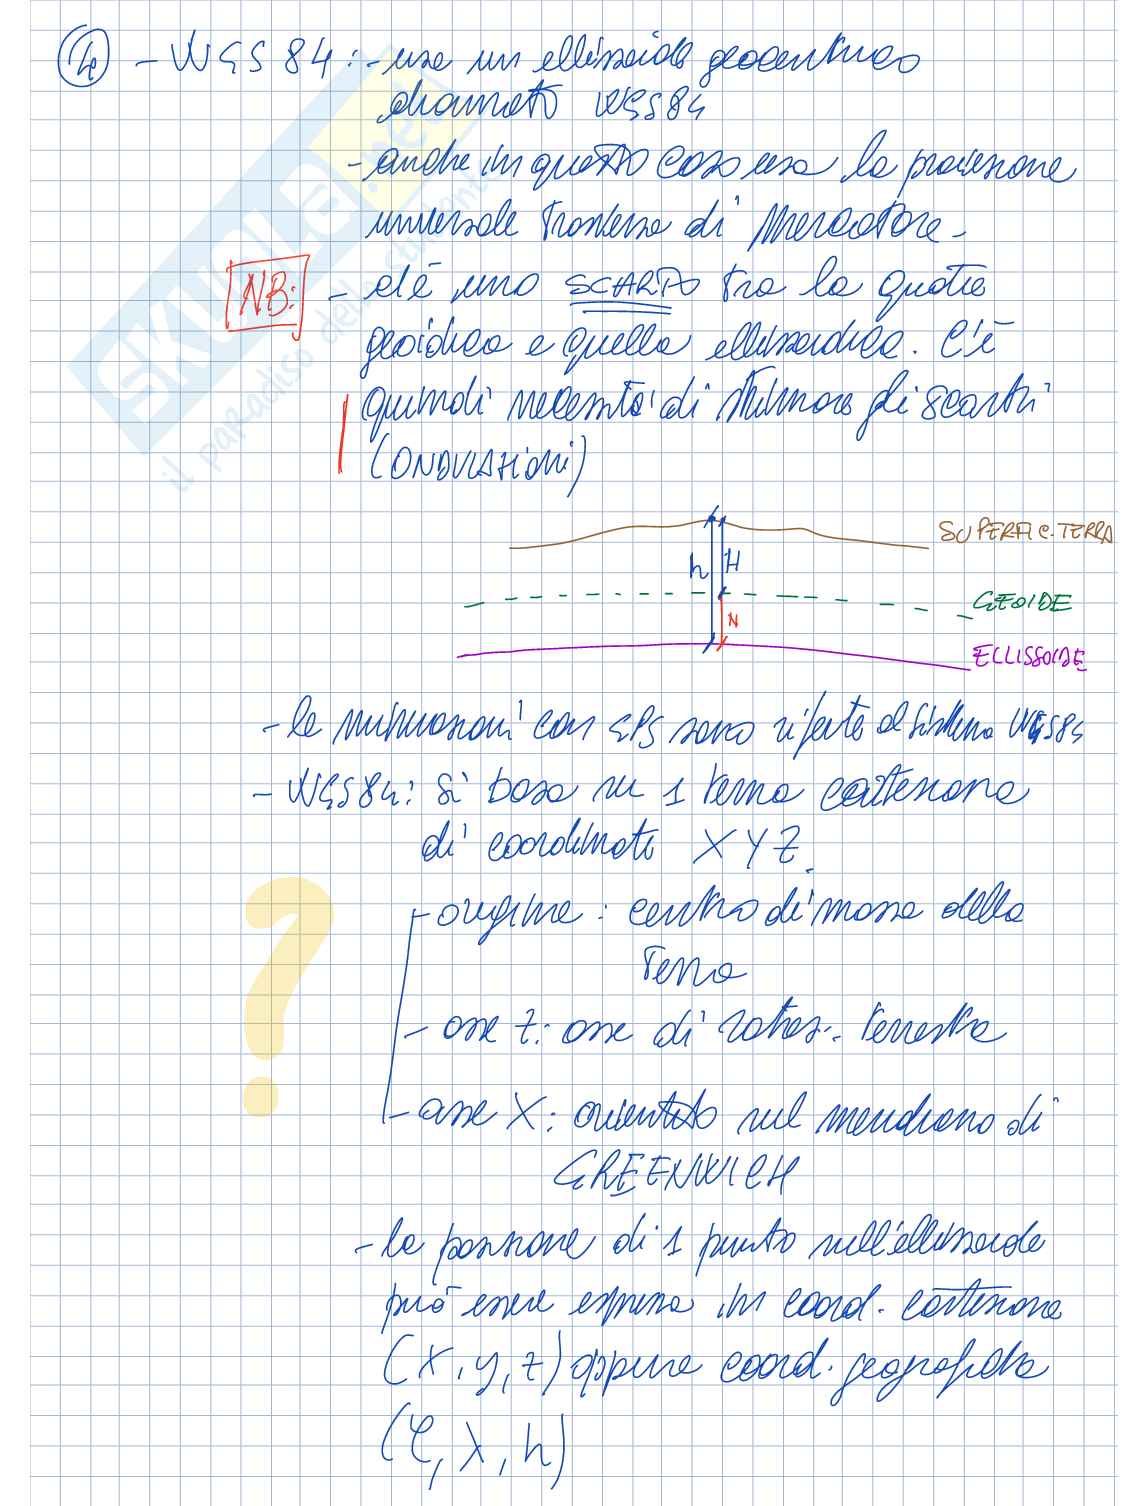 ④ - WGS84: - usa un ellissoide geocentrico
chiamato WGS84
- anche in questo caso usa la proiezione
universale trasversa di Mercatore.
NB: - c'è uno SCARTO tra la quota
geoidica e quella ellissoidica. C'è
quindi necessità di stimare gli scarti
(ONDULAZIONI)
SUPERFIC. TERRA
h H
GEOIDE
N
ELLISSOIDE
- le misurazioni con GPS sono riferite al sistema WGS84
- WGS84: si basa su 1 terna cartesiana
di coordinate X Y Z.
- origine: centro di massa della
Terra
- asse Z: asse di rotaz. terrestre
- asse X: orientato sul meridiano di
GREENWICH
- la posizione di 1 punto sull'ellissoide
può essere espressa in coord. cartesiane
(X, y, z) oppure coord. geografiche
(φ, λ, h)
SKUOLA.net
il paradiso dello studente